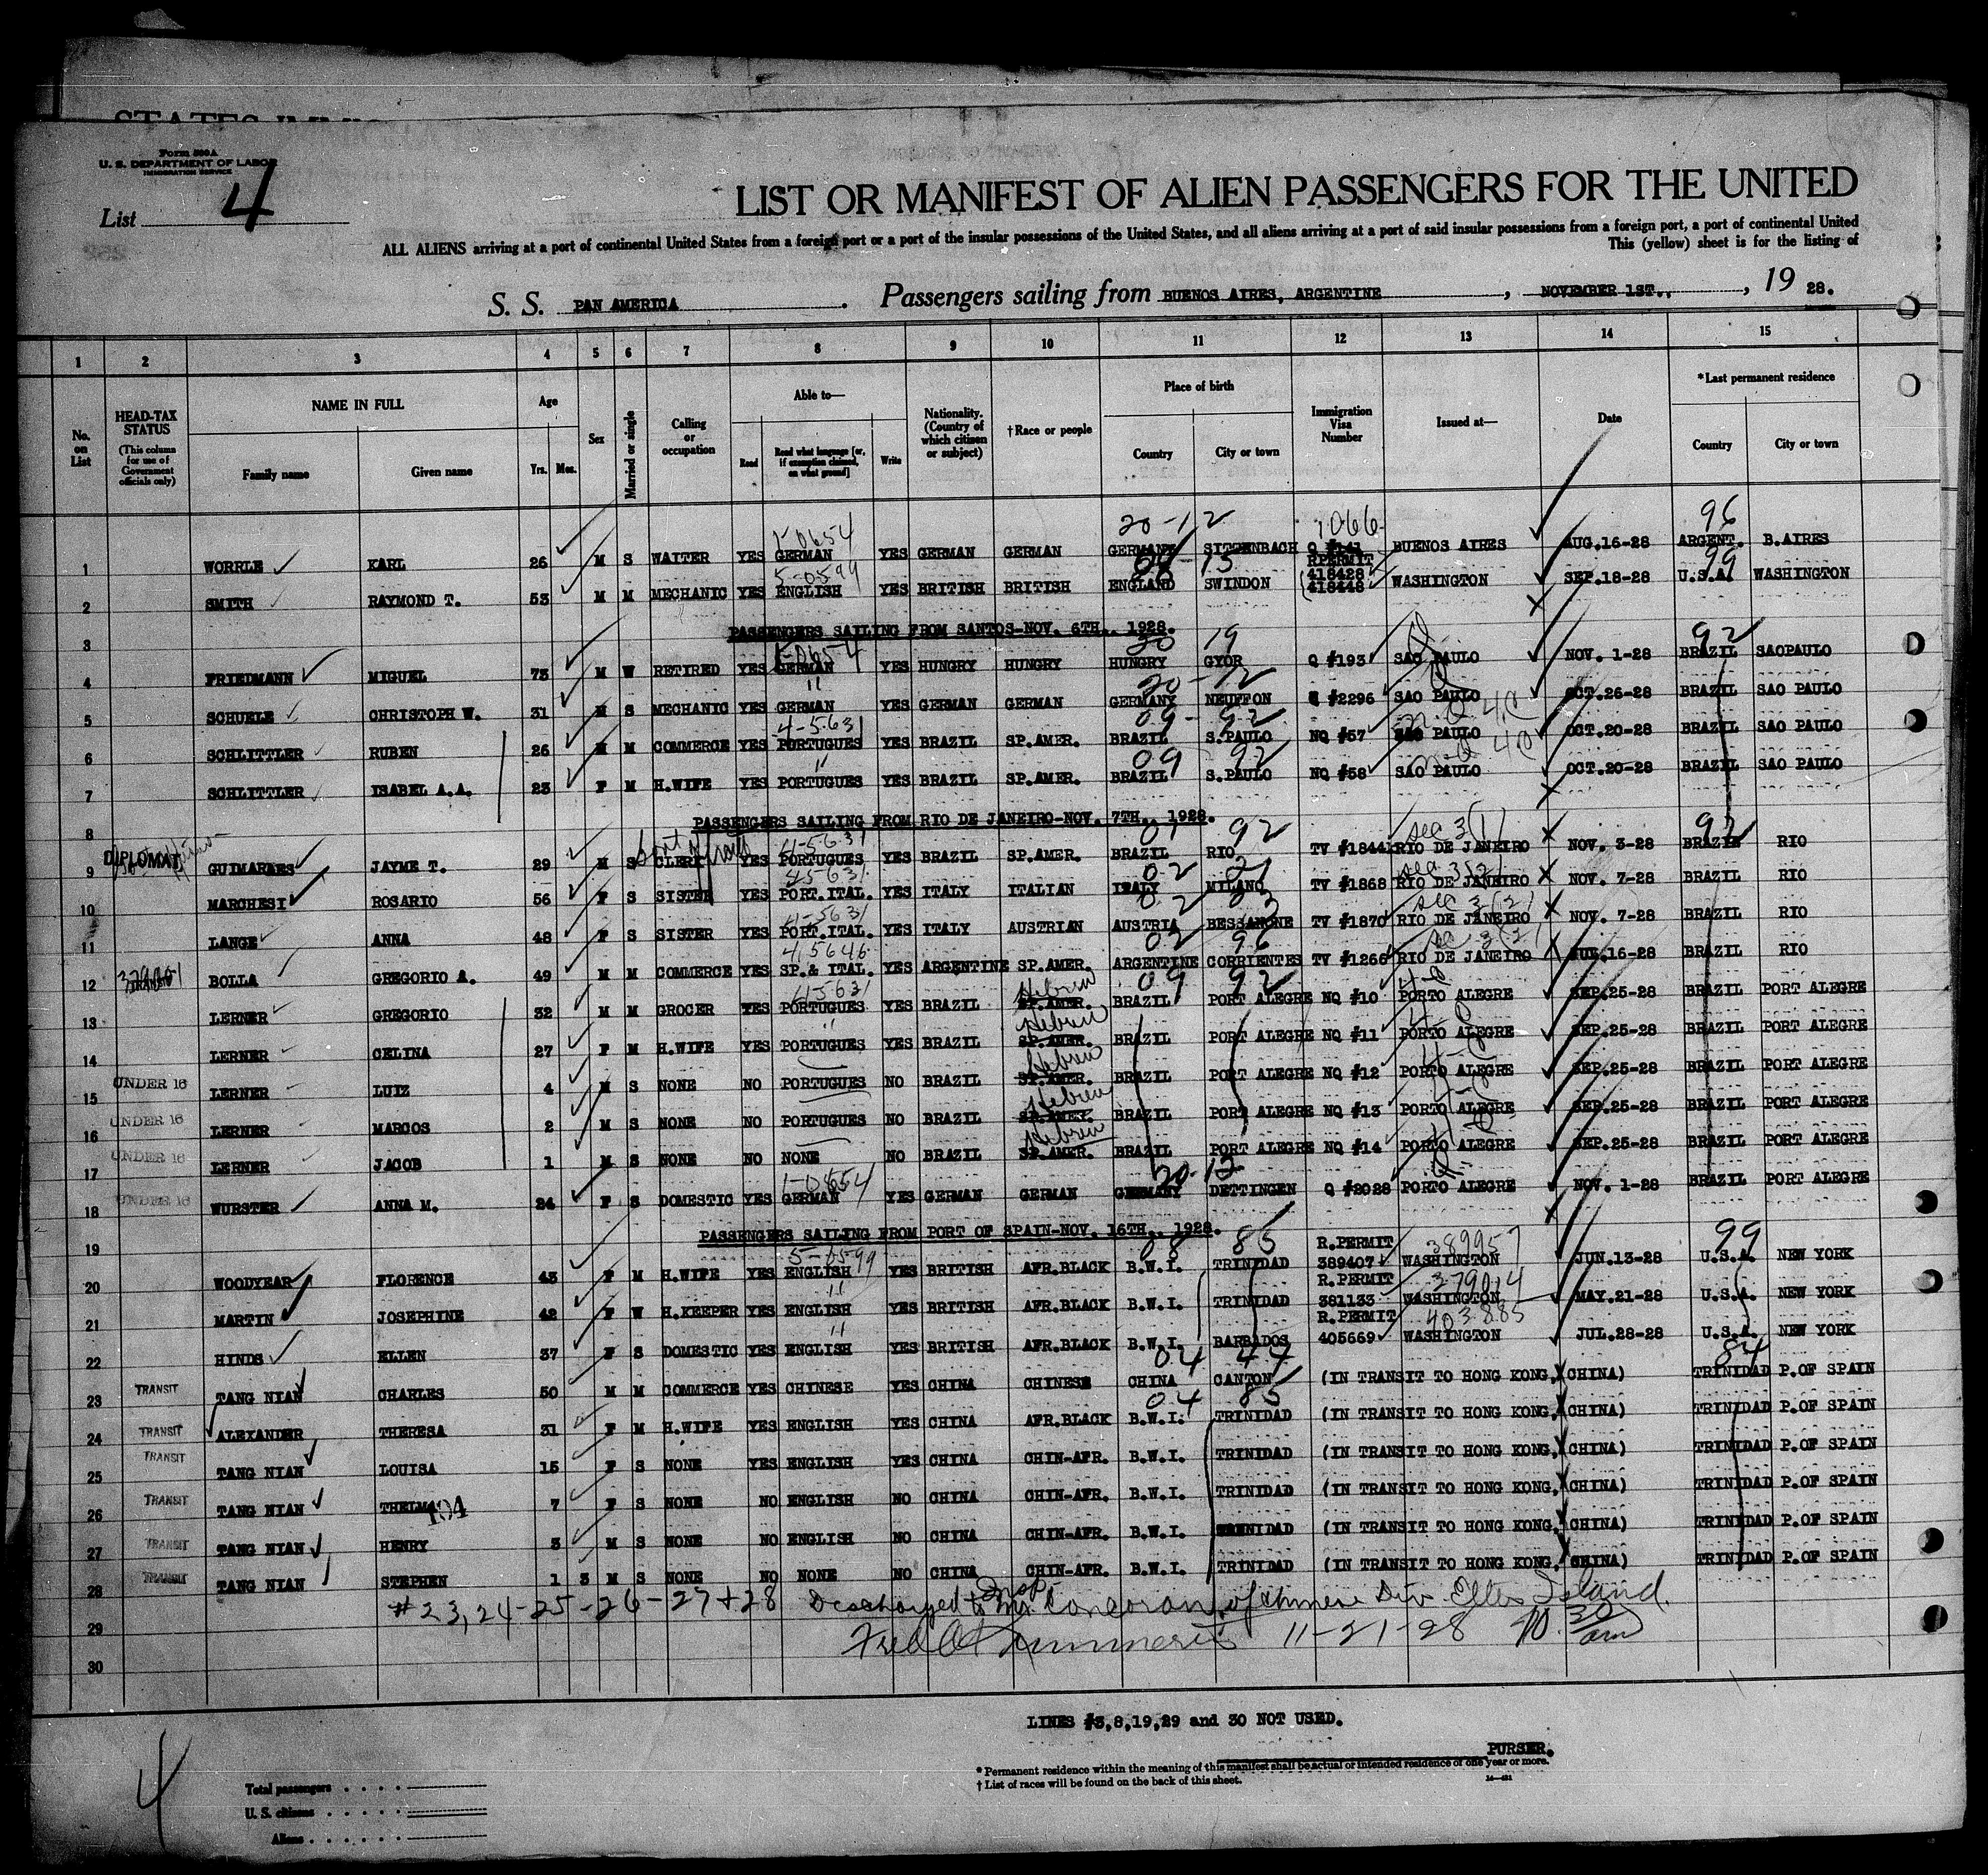 STATES IMMIG
Form 500A
U. S. DEPARTMENT OF LABOR
IMMIGRATION SERVICE
List 4
LIST OR MANIFEST OF ALIEN PASSENGERS FOR THE UNITED
ALL ALIENS arriving at a port of continental United States from a foreign port or a port of the insular possessions of the United States, and all aliens arriving at a port of said insular possessions from a foreign port, a port of continental United
This (yellow) sheet is for the listing of
S. S. PAN AMERICA. Passengers sailing from BUENOS AIRES, ARGENTINE, NOVEMBER 1ST., 19 28.
1 2 3 4 5 6 7 8 9 10 11 12 13 14 15
No. on List
HEAD-TAX STATUS (This column for use of Government officials only)
NAME IN FULL Family name Given name
Age Yrs. Mos.
Sex
Married or single
Calling or occupation
Able to— Read Read what language [or, if exemption claimed, on what ground] Write
Nationality. (Country of which citizen or subject)
†Race or people
Place of birth Country City or town
Immigration Visa Number
Issued at—
Date
*Last permanent residence Country City or town
1-0654 20-12 1066 96
1 WORRLE KARL 26 M S WAITER YES GERMAN YES GERMAN GERMAN GERMANY SITTENBACH Q #141 BUENOS AIRES AUG.16-28 ARGENT. B.AIRES
5-0599 15 RPERMIT 418428 99
2 SMITH RAYMOND T. 53 M M MECHANIC YES ENGLISH YES BRITISH BRITISH ENGLAND SWINDON 418448 WASHINGTON SEP.18-28 U.S.A. WASHINGTON
3 PASSENGERS SAILING FROM SANTOS-NOV. 6TH., 1928.
1-0654 20 19 92
4 FRIEDMANN MIGUEL 73 M W RETIRED YES GERMAN YES HUNGRY HUNGRY HUNGRY GYOR Q #193 SAO PAULO NOV. 1-28 BRAZIL SAOPAULO
" 20-12
5 SCHUELE CHRISTOPH W. 31 M S MECHANIC YES GERMAN YES GERMAN GERMAN GERMANY NEUFFON Q #2296 SAO PAULO OCT.26-28 BRAZIL SAO PAULO
4-5631 09-92 n.Q 4C
6 SCHLITTLER RUBEN 26 M M COMMERCE YES PORTUGUES YES BRAZIL SP.AMER. BRAZIL S.PAULO NQ #57 SAO PAULO OCT.20-28 BRAZIL SAO PAULO
" 09 92 n-Q 4C
7 SCHLITTLER ISABEL A.A. 23 F M H.WIFE YES PORTUGUES YES BRAZIL SP.AMER. BRAZIL S.PAULO NQ #58 SAO PAULO OCT.20-28 BRAZIL SAO PAULO
8 PASSENGERS SAILING FROM RIO DE JANEIRO-NOV. 7TH., 1928.
4-5631 92 sec 3(1) 92
9 DIPLOMAT GUIMARAES JAYME T. 29 M S CLERK YES PORTUGUES YES BRAZIL SP.AMER. BRAZIL RIO TV #1844 RIO DE JANEIRO NOV. 3-28 BRAZIL RIO
45631 02 21 sec 3(2)
10 MARCHESI ROSARIO 56 F S SISTER YES PORT.ITAL. YES ITALY ITALIAN ITALY MILANO TV #1868 RIO DE JANEIRO NOV. 7-28 BRAZIL RIO
4-5631 02 03 sec 3(2)
11 LANGE ANNA 48 F S SISTER YES PORT.ITAL. YES ITALY AUSTRIAN AUSTRIA BESSANONE TV #1870 RIO DE JANEIRO NOV. 7-28 BRAZIL RIO
4,5646 02 96 sec 3(2)
12 BOLLA GREGORIO A. 49 M M COMMERCE YES SP.& ITAL. YES ARGENTINE SP.AMER. ARGENTINE CORRIENTES TV #1266 RIO DE JANEIRO JUL.16-28 BRAZIL RIO
4-5631 Hebrew 09 92
13 LERNER GREGORIO 32 M M GROCER YES PORTUGUES YES BRAZIL SP.AMER. BRAZIL PORT ALEGRE NQ #10 PORTO ALEGRE SEP.25-28 BRAZIL PORT ALEGRE
" Hebrew
14 LERNER CELINA 27 F M H.WIFE YES PORTUGUES YES BRAZIL SP.AMER. BRAZIL PORT ALEGRE NQ #11 PORTO ALEGRE SEP.25-28 BRAZIL PORT ALEGRE
Hebrew
15 UNDER 16 LERNER LUIZ 4 M S NONE NO PORTUGUES NO BRAZIL SP.AMER. BRAZIL PORT ALEGRE NQ #12 PORTO ALEGRE SEP.25-28 BRAZIL PORT ALEGRE
Hebrew
16 UNDER 16 LERNER MARCOS 2 M S NONE NO PORTUGUES NO BRAZIL SP.AMER. BRAZIL PORT ALEGRE NQ #13 PORTO ALEGRE SEP.25-28 BRAZIL PORT ALEGRE
Hebrew
17 UNDER 16 LERNER JACOB 1 M S NONE NO NONE NO BRAZIL SP.AMER. BRAZIL PORT ALEGRE NQ #14 PORTO ALEGRE SEP.25-28 BRAZIL PORT ALEGRE
1-0654 20-12
18 UNDER 16 WURSTER ANNA M. 24 F S DOMESTIC YES GERMAN YES GERMAN GERMAN GERMANY DETTINGEN Q #2028 PORTO ALEGRE NOV. 1-28 BRAZIL PORT ALEGRE
19 PASSENGERS SAILING FROM PORT OF SPAIN-NOV. 16TH., 1928.
5-0599 08 85 R.PERMIT 389957 99
20 WOODYEAR FLORENCE 43 F M H.WIFE YES ENGLISH YES BRITISH AFR.BLACK B.W.I. TRINIDAD 389407 WASHINGTON JUN.13-28 U.S.A. NEW YORK
" R.PERMIT 379014
21 MARTIN JOSEPHINE 42 F W H.KEEPER YES ENGLISH YES BRITISH AFR.BLACK B.W.I. TRINIDAD 381133 WASHINGTON MAY.21-28 U.S.A. NEW YORK
" R.PERMIT 403885
22 HINDS ELLEN 37 F S DOMESTIC YES ENGLISH YES BRITISH AFR.BLACK B.W.I. BARBADOS 405669 WASHINGTON JUL.28-28 U.S.A. NEW YORK
04 44 84
23 TRANSIT TANG NIAN CHARLES 50 M M COMMERCE YES CHINESE YES CHINA CHINESE CHINA CANTON (IN TRANSIT TO HONG KONG, CHINA) TRINIDAD P.OF SPAIN
04 85
24 TRANSIT ALEXANDER THERESA 31 F M H.WIFE YES ENGLISH YES CHINA AFR.BLACK B.W.I. TRINIDAD (IN TRANSIT TO HONG KONG, CHINA) TRINIDAD P.OF SPAIN
25 TRANSIT TANG NIAN LOUISA 15 F S NONE YES ENGLISH YES CHINA CHIN-AFR. B.W.I. TRINIDAD (IN TRANSIT TO HONG KONG, CHINA) TRINIDAD P.OF SPAIN
26 TRANSIT TANG NIAN THELMA 104 7 F S NONE NO ENGLISH NO CHINA CHIN-AFR. B.W.I. TRINIDAD (IN TRANSIT TO HONG KONG, CHINA) TRINIDAD P.OF SPAIN
27 TRANSIT TANG NIAN HENRY 3 M S NONE NO ENGLISH NO CHINA CHIN-AFR. B.W.I. TRINIDAD (IN TRANSIT TO HONG KONG, CHINA) TRINIDAD P.OF SPAIN
28 TRANSIT TANG NIAN STEPHEN 1 3 M S NONE NO NONE NO CHINA CHIN-AFR. B.W.I. TRINIDAD (IN TRANSIT TO HONG KONG, CHINA) TRINIDAD P.OF SPAIN
29 #23,24-25-26-27+28 Discharged to Insp. Corcoran of Chinese Div. Ellis Island.
Fred 11-21-28 10 30 am
30
LINES #3,8,19,29 and 30 NOT USED.
PURSER.
* Permanent residence within the meaning of this manifest shall be actual or intended residence of one year or more.
† List of races will be found on the back of this sheet.
4
Total passengers
U. S. citizens
Aliens